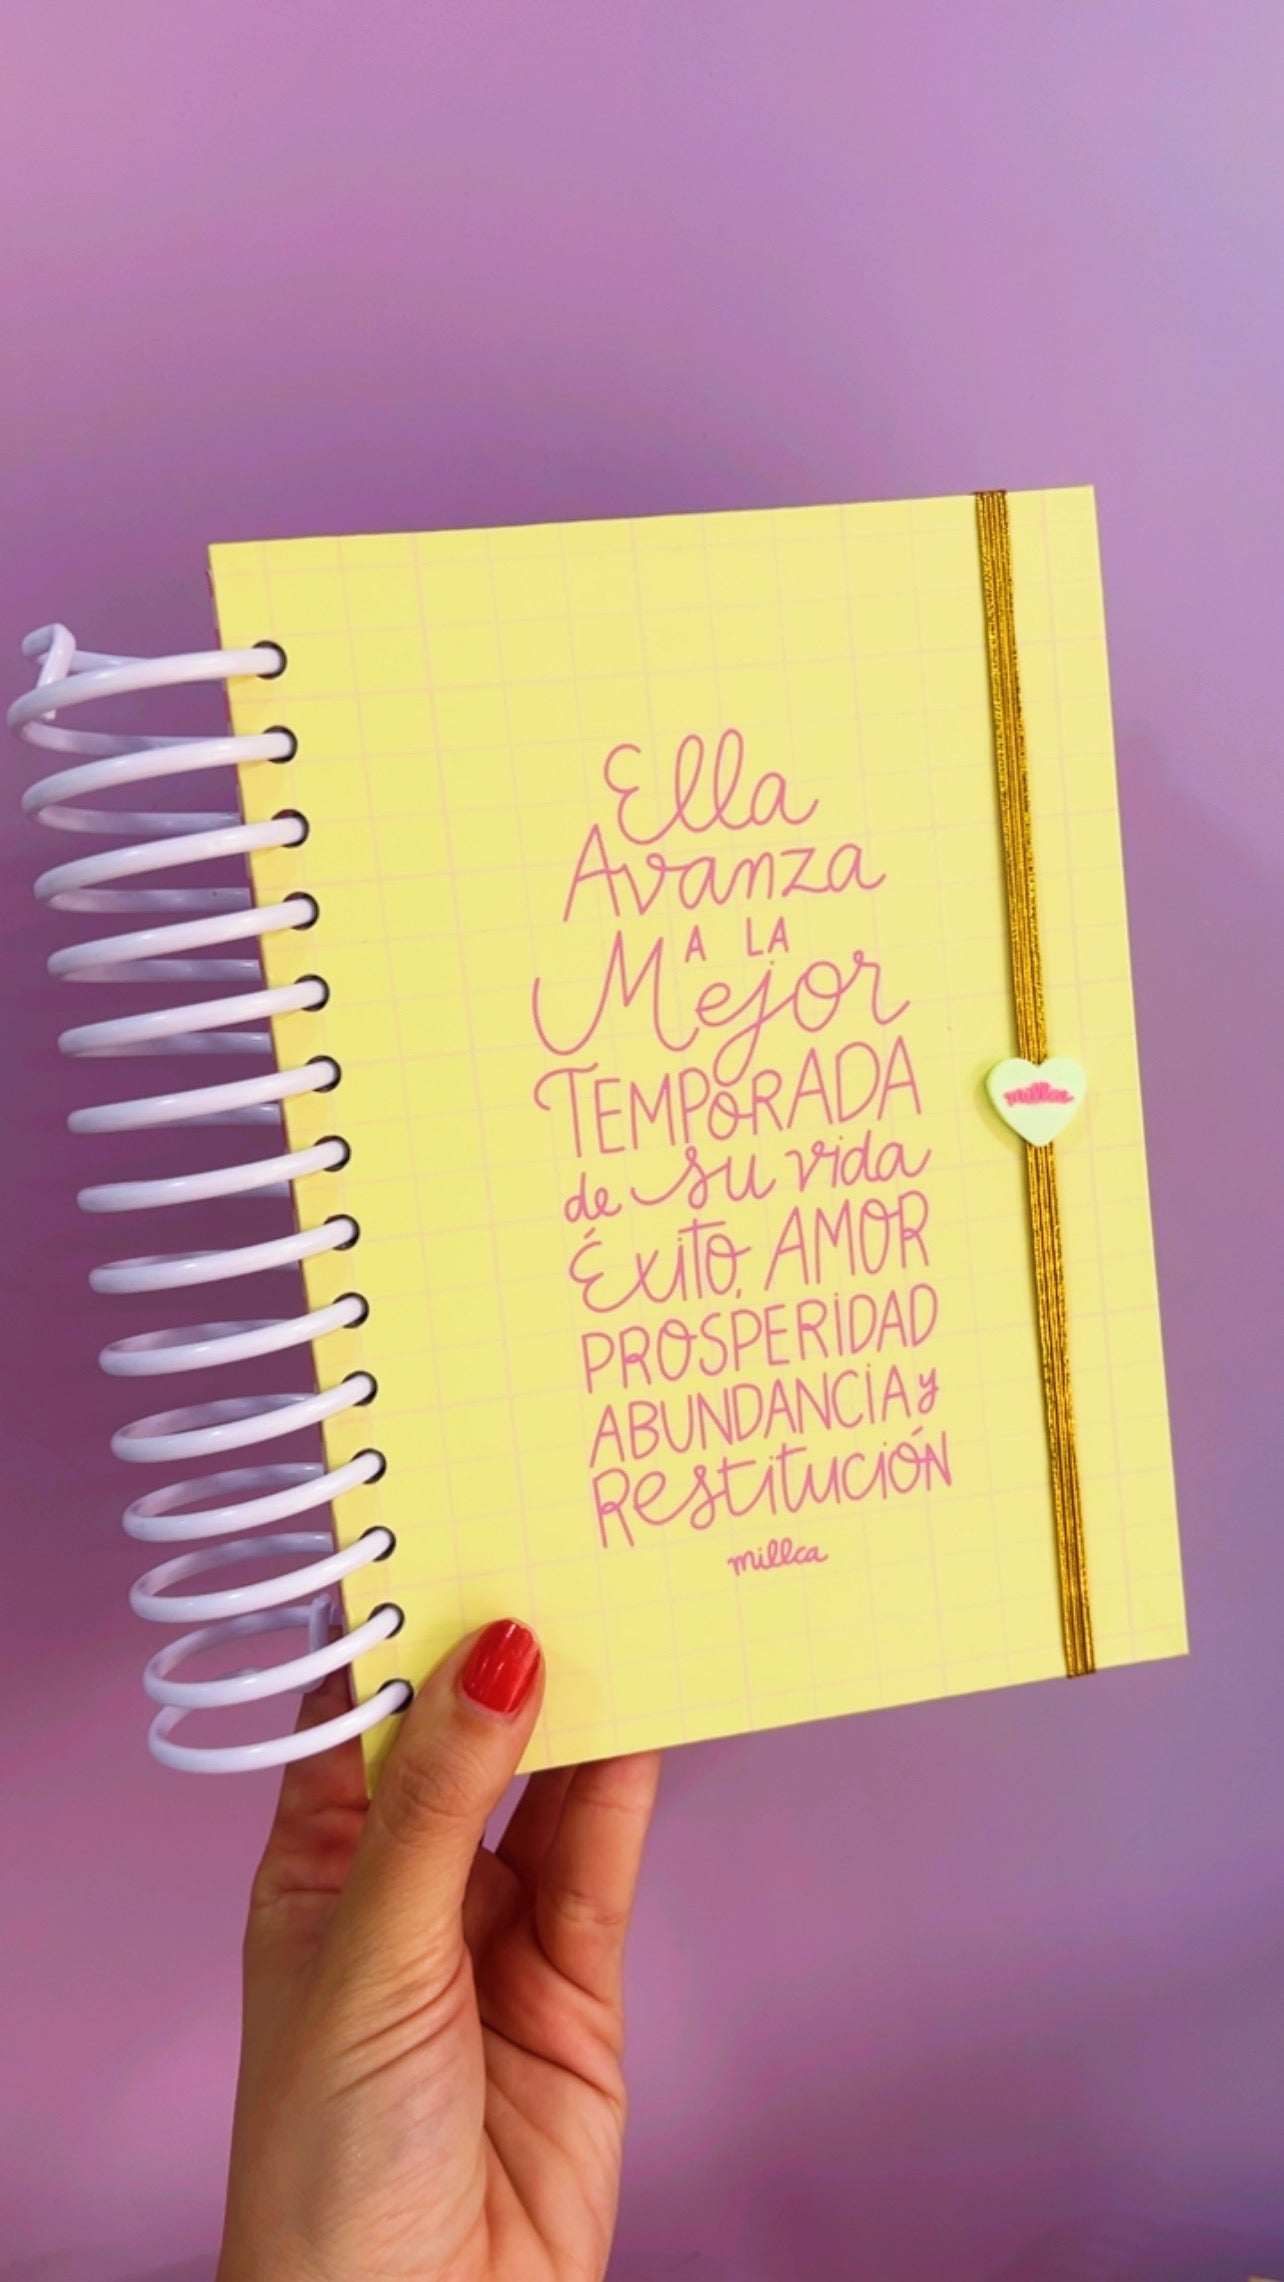 Ella
Avanza
A LA
Mejor
TEMPORADA
de su vida
Éxito, AMOR
PROSPERIDAD
ABUNDANCIA y
RestituCIÓN
millca
millca